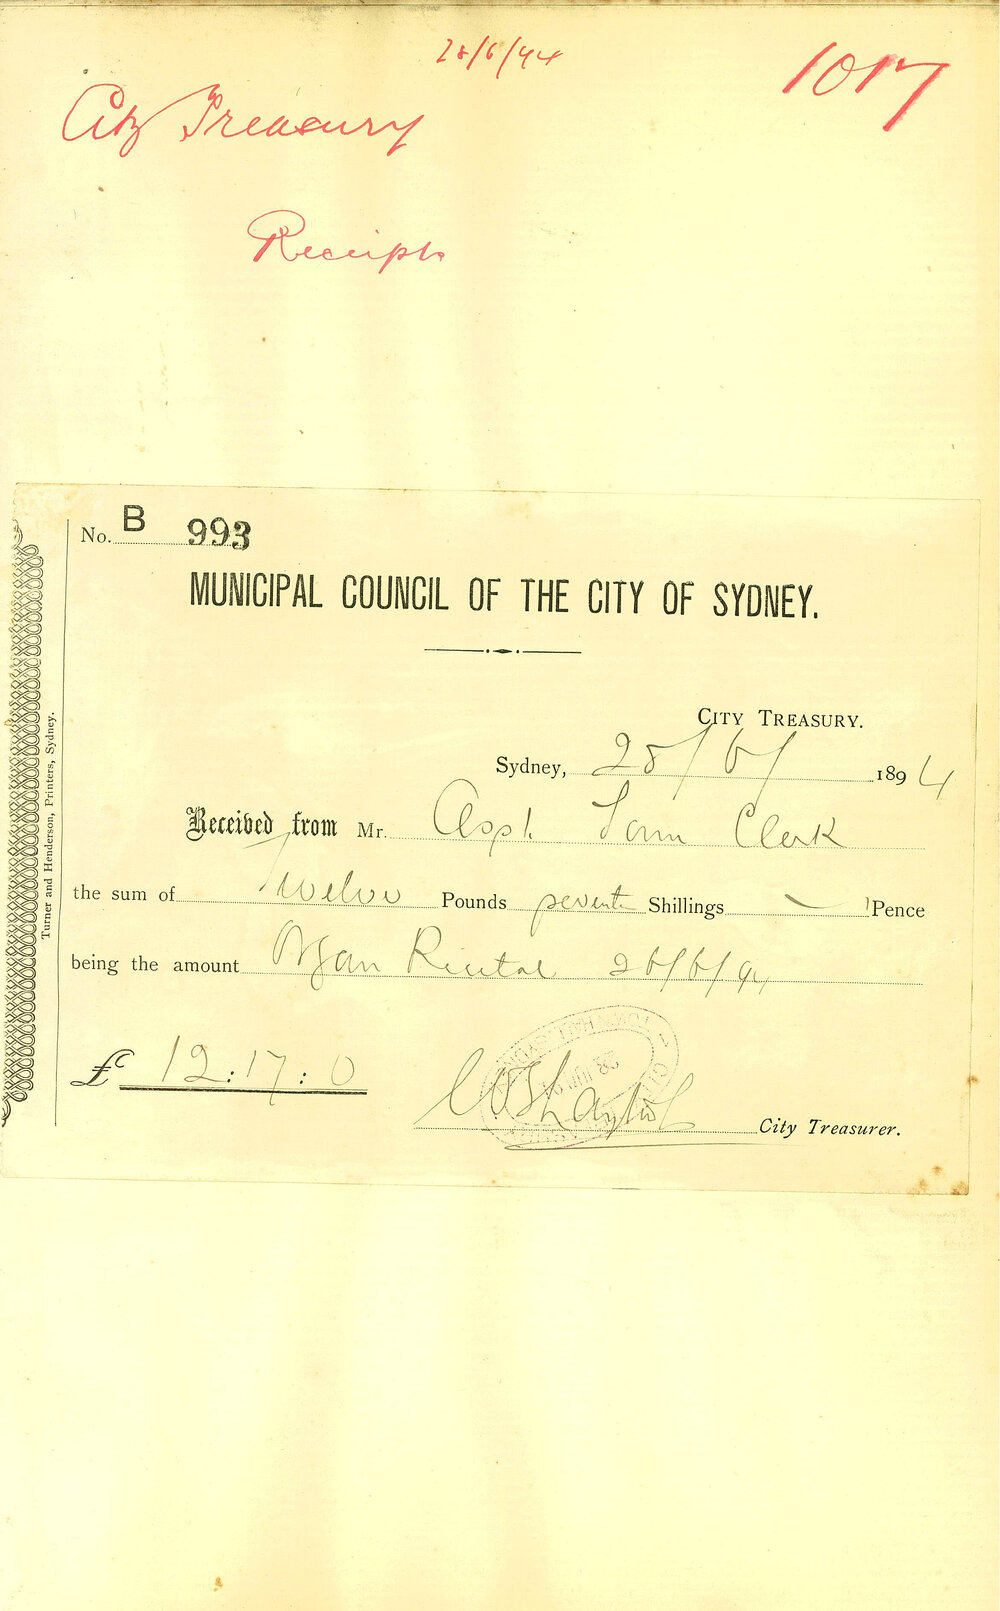 28/6/94
1017
City Treasury
Receipts
No. B 993
MUNICIPAL COUNCIL OF THE CITY OF SYDNEY.
CITY TREASURY.
Sydney, 28/6/ 1894
Received from Mr. Asst. Town Clerk
the sum of Twelve Pounds sevente Shillings — Pence
being the amount Organ Recital 26/6/94
£ 12 : 17 : 0
TOWN HALL SYDNEY
28 JUN 94
City Treasurer.
Turner and Henderson, Printers, Sydney.